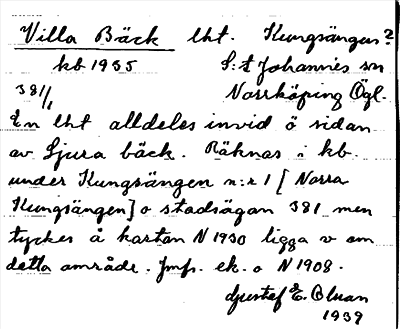 Villa Bäck lht. Kungsängen?
kb 1935 S:t Johannes sn
381/1 Norrköping Ögl.
En lht alldeles invid ö sidan
av Ljura bäck. Räknas i kb
under Kungsängen n:r 1 [Norra
Kungsängen] o stadsägan 381 men
tyckes å kartan N 1930 ligga v om
detta område. Jmf. ek. o N 1908.
Gustaf E. Olsson
1939